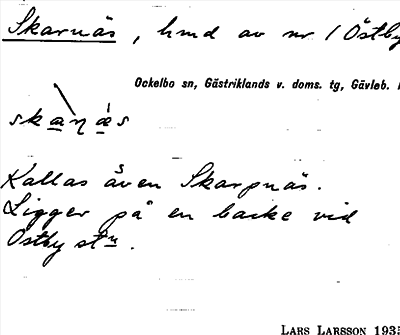 Skarnäs, hmd av nr 1 Östby
Ockelbo sn, Gästriklands v. doms. tg, Gävleb.
Kallas även Skarpnäs.
Ligger på en backe vid
Östby stn.
LARS LARSSON 1935